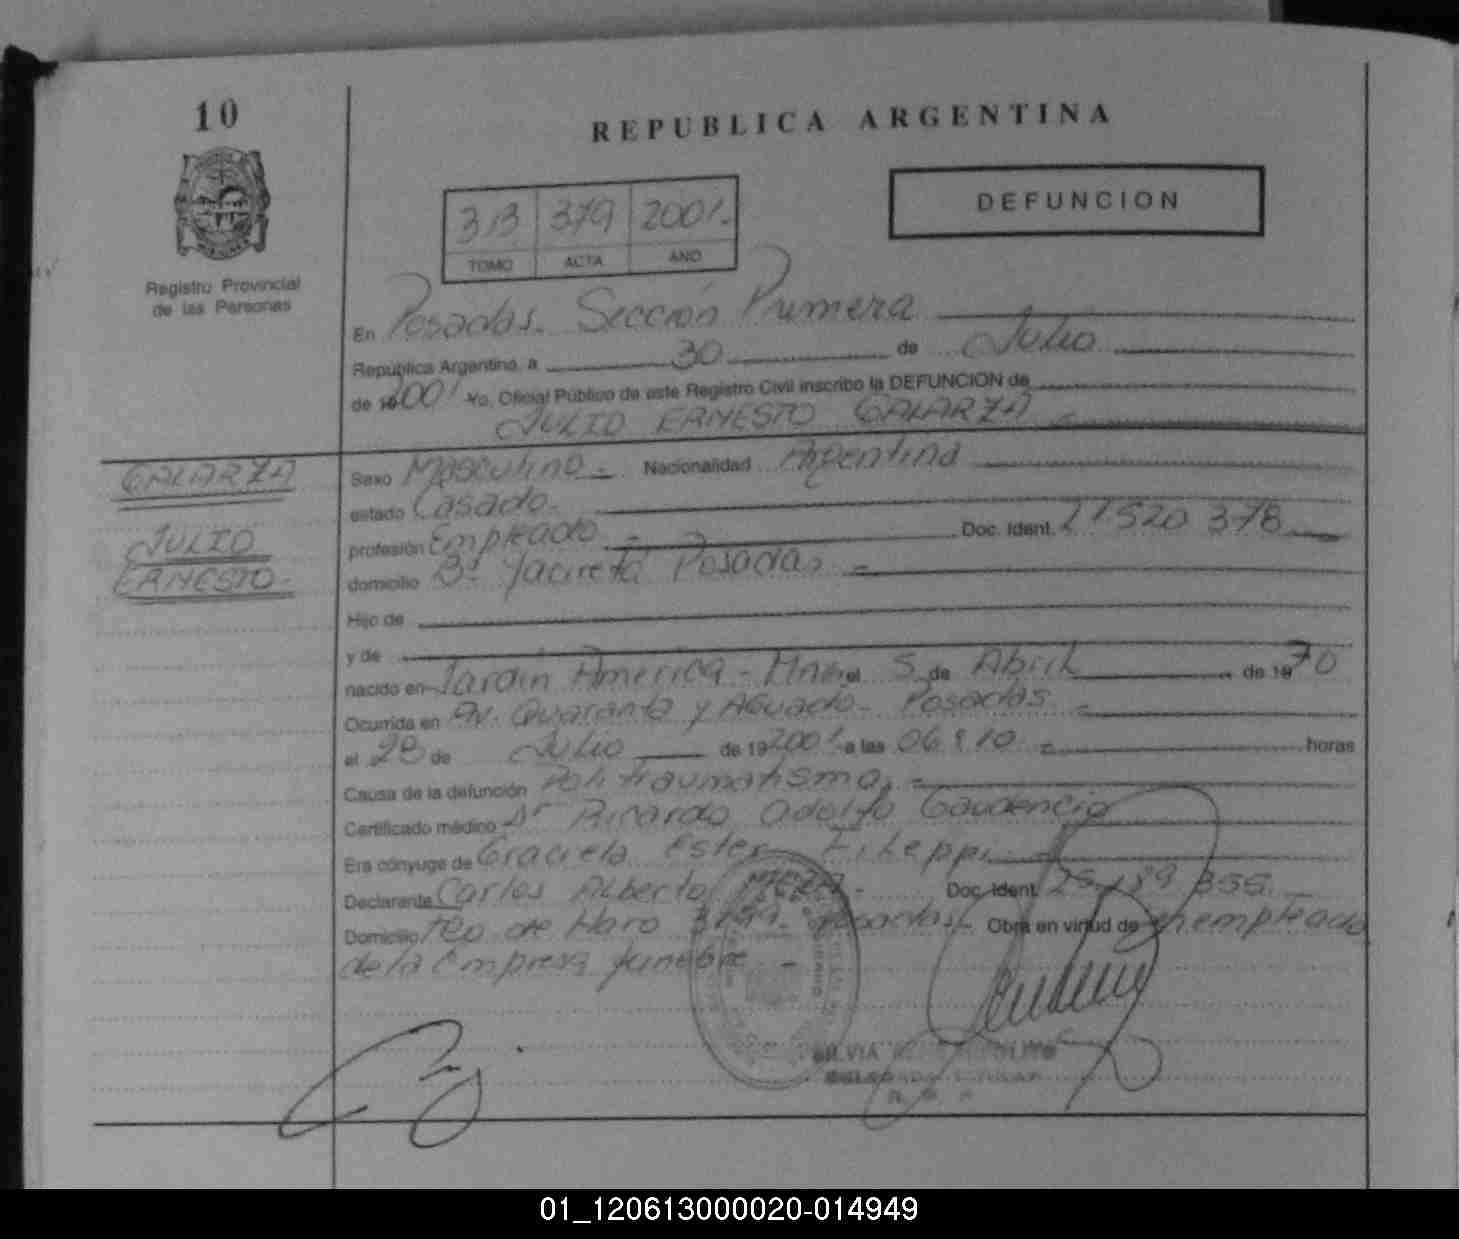 10
REPUBLICA ARGENTINA
DEFUNCION
313 379 2001.-
TOMO ACTA AÑO
Registro Provincial
de las Personas
En Posadas. Sección Primera
República Argentina, a 30 de Julio
de 192001 Yo, Oficial Público de este Registro Civil inscribo la DEFUNCION de
JULIO ERNESTO GALARZA -
GALARZA
JULIO
ERNESTO-
Sexo Masculino - Nacionalidad Argentina
estado Casado-
profesión Empleado - Doc. Ident. 21520 378
domicilio Bº Yacireta Posadas -
Hijo de
y de
nacido en Jardin America - Mnes el 5 de Abril de 1970
Ocurrida en Av. Quaranta y Aguado - Posadas -
el 28 de Julio de 192001 a las 06 y 10 - horas
Causa de la defunción Politraumatismo, -
Certificado médico Dr Ricardo Adolfo Gaudencio
Era cónyuge de Graciela Ester Fileppi
Declarante Carlos Alberto - Doc. Ident. 355
Domicilio de Haro Posadas - Obra en virtud de empleado
de la Empresa funebre -
SILVIA
01_120613000020-014949